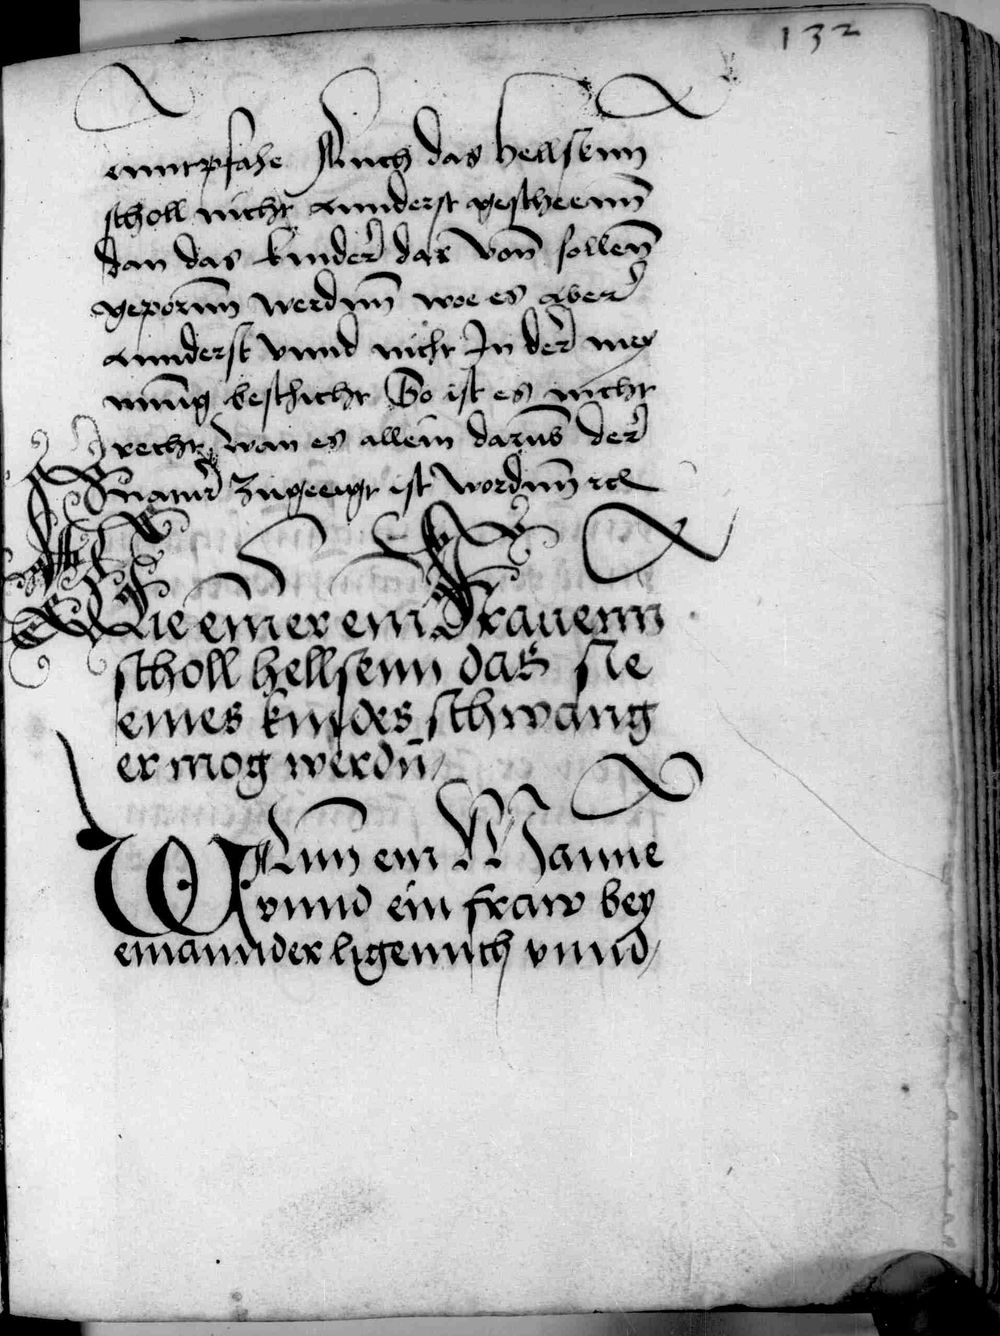 132
enntpfahe Auch das hellsenn
scholl nicht annderst gescheenn
dan das kinder dar von sollen
geporenn werdenn woe es aber
annderst vnnd nicht In der mey
nung beschicht So ist es nicht
recht wan es allein darumb der
natur zugeeigt ist wordenn
Wie einer ein Frauenn
scholl hellsenn das sie
eines kindes schwang
er mog werdn
Wann ein Manne
vnnd ein fraw bey
einannder ligennth vnnd